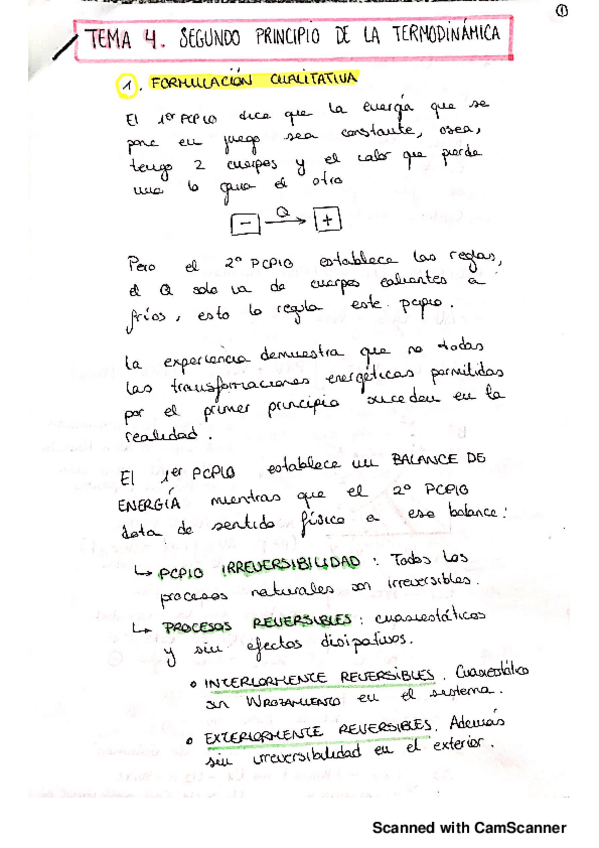 1
TEMA 4. SEGUNDO PRINCIPIO DE LA TERMODINÁMICA
1. FORMULACIÓN CUALITATIVA
El 1er PCPIO dice que la energía que se
pone en juego sea constante, osea,
tengo 2 cuerpos y el calor que pierde
uno lo gana el otro
- Q +
Pero el 2º PCPIO establece las reglas,
el Q solo va de cuerpos calientes a
fríos, esto lo regula este pcpio.
La experiencia demuestra que no todas
las transformaciones energéticas permitidas
por el primer principio suceden en la
realidad.
El 1er PCPIO establece un BALANCE DE
ENERGÍA mientras que el 2º PCPIO
dota de sentido físico a ese balance:
↳ PCPIO IRREVERSIBILIDAD: Todos los
procesos naturales son irreversibles.
↳ PROCESOS REVERSIBLES: cuasiestáticos
y sin efectos disipativos.
• INTERIORMENTE REVERSIBLES. Cuasiestático
sin WROZAMIENTO en el sistema.
• EXTERIORMENTE REVERSIBLES. Además
sin irreversibilidad en el exterior.
Scanned with CamScanner